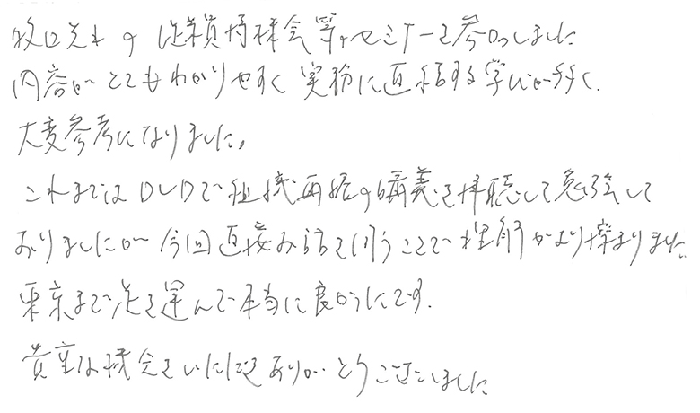 牧口先生の従業員持株会等のセミナーを参加しました
内容がとてもわかりやすく実務に直結する学びが多く、
大変参考になりました。
これまではDVDで組織再編の講義を拝聴して勉強して
おりましたが今回直接お話を伺うことで理解がより深まりました
東京まで足を運んで本当に良かったです。
貴重な機会をいただきありがとうございました